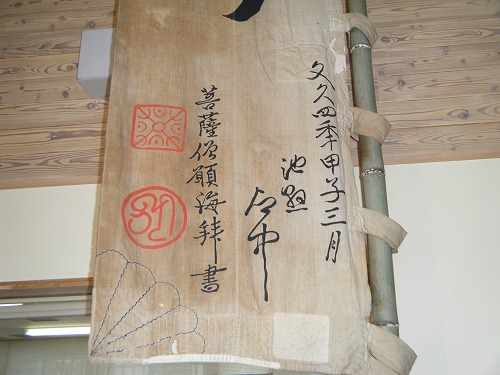 文久四年甲子三月
池
中
菩薩僧願海拜書